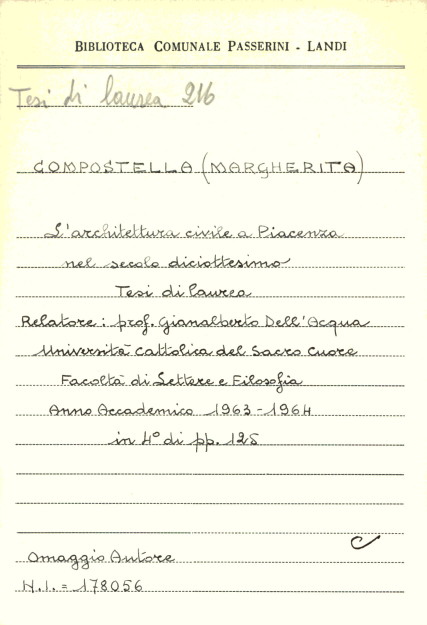 BIBLIOTECA COMUNALE PASSERINI - LANDI
Tesi di laurea 216
COMPOSTELLA (MARGHERITA)
L'architettura civile a Piacenza
nel secolo diciottesimo
Tesi di laurea
Relatore: prof. Gianalberto Dell'Acqua
Università Cattolica del Sacro Cuore
Facoltà di Lettere e Filosofia
Anno Accademico 1963-1964
in 4° di pp. 125
C
Omaggio Autore
N.I. = 178056